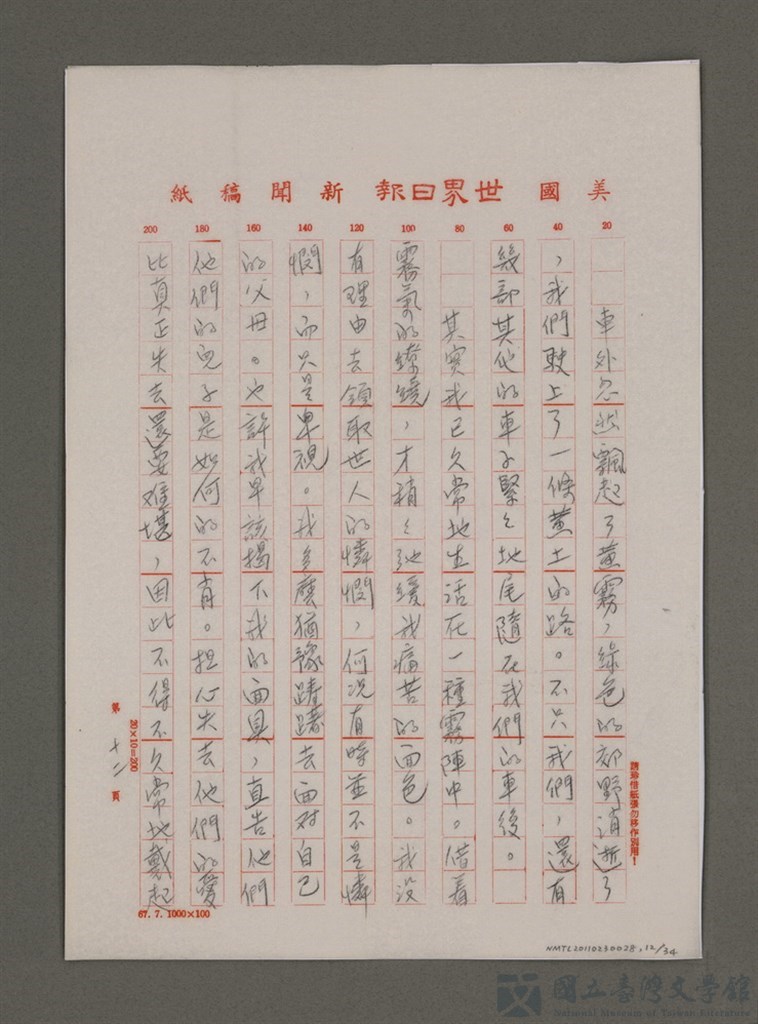 美國世界日報新聞稿紙
20 40 60 80 100 120 140 160 180 200
車外忽然飄起了黃霧，綠色的郊野消逝了
，我們駛上了一條黃土的路。不只我們，還有
幾部其他的車子緊緊地尾隨在我們的車後。
其實我已久常地生活在一種霧陣中。借着
霧氣的繚繞，才稍稍弛緩我痛苦的面色。我沒
有理由去領取世人的憐憫，何況有時並不是憐
憫，而只是卑視。我多麼猶豫躊躇去面對自己
的父母。也許我早該揭下我的面具，直告他們
他們的兒子是如何的不肖。担心失去他們的愛
比真正失去還要難堪，因此不得不久常地戴起
請珍惜紙張勿移作別用！
20×10=200
第十二頁
67. 7. 1000×100
NMTL20110230028, 12/34
國立臺灣文學館
National Museum of Taiwan Literature